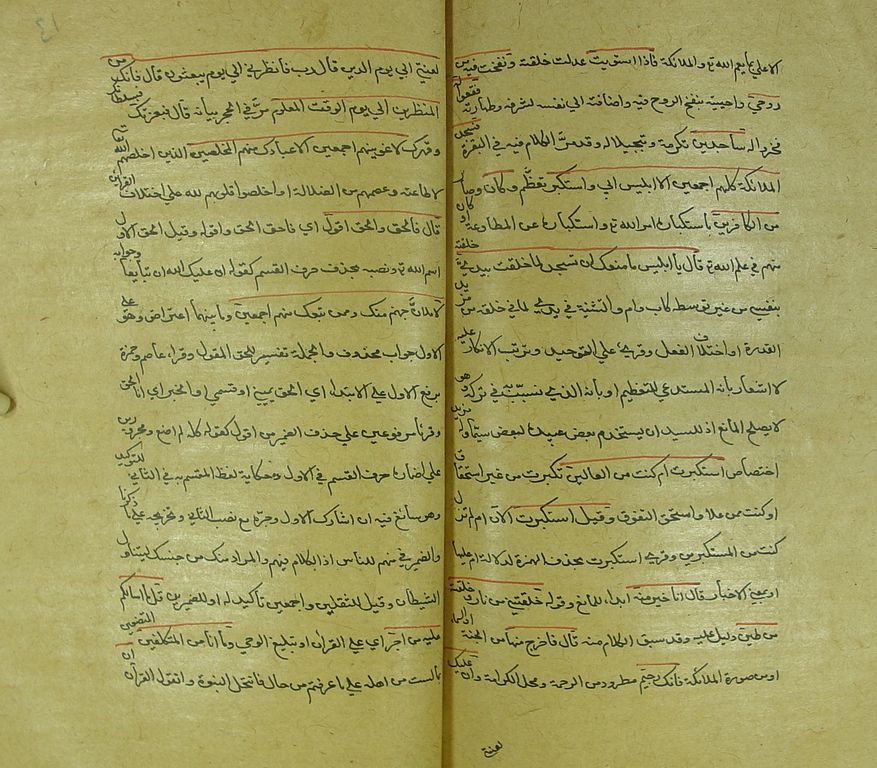 الاعلي ما يعم الله تع والملائكة فاذا استويت عدلت خلقته ونفخت فيه من
روحي واحييته بنفخ الروح فيه واضافته الي نفسه لشرفه وطهارته فقعوا
فخروا له ساجدين تكرمة وتبجيلا له وقد مر الكلام فيه في البقرة فسجد
الملائكة كلهم اجمعين الا ابليس ابي واستكبر تعظم وكان وصار
من الكافرين باستكباره امر الله تع واستكباره عن المطاوعة او كان
منهم في علم الله تع قال يا ابليس ما منعك ان تسجد لما خلقت بيدي خلقته
بنفسي من غير توسط كاب وام والتثنية في يدي لما في خلقه من مزيد
القدرة او اختلاف الفعل وقرئ علي التوحيد وترتب الانكار عليه
لاشعار بانه المستدعي للتعظيم او بانه الذي تشبث به في تركه وهو
لا يصلح المانع اذ للسيد ان يستخدم بعض عبيده لبعض سيما وله مزيد
اختصاص استكبرت ام كنت من العالين تكبرت من غير استحقاق
او كنت ممن علا واستحق التفوق وقيل استكبرت الآن ام لم تزل
كنت من المستكبرين وقرئ استكبرت بحذف الهمزة لدلالة ام عليها
او بمعني الاخبار قال انا خير منه ابداء للمانع وقوله خلقتني من نار وخلقته
من طين دليل عليه وقد سبق الكلام منه قال فاخرج منها من الجنة او السماء
او من صورة الملائكة فانك رجيم مطرود من الرحمة ومحل الكرامة وان عليك
لعنتي
لعنتي الي يوم الدين قال رب فانظرني الي يوم يبعثون قال فانك من
المنظرين الي يوم الوقت المعلوم مر في الحجر بيانه قال فبعزتك فبسلطانك
وقهرك لاغوينهم اجمعين الا عبادك منهم المخلصين الذين اخلصهم الله تع
لاطاعته وعصمهم من الضلالة او اخلصوا قلوبهم لله علي اختلاف القرائين
قال فالحق والحق اقول اي فاحق الحق واقوله وقيل الحق الاول
اسم الله تع ونصبه بحذف حرف القسم كقوله ان عليك الله ان تبايعا وجوابه
لاملان جهنم منك وممن تبعك منهم اجمعين وما بينهما اعتراض وهو علي
الاول جواب محذوف والجملة تفسير للحق المقول وقراء عاصم وحمزة
برفع الاول علي الابتداء اي الحق يميني او قسمي او الخبر اي انا الحق
وقرئا مرفوعين علي حذف الضمير من اقول كقوله كله لم اصنع ومجرورين
علي اضمار حرف القسم في الاول وحكاية لفظ المقسم به في الثاني للتوكيد
وهو سائغ فيه ان اشارك الاول وجره مع نصب الثاني وتخريجه علي ما ذكرنا
والضمير في منهم للناس اذ الكلام فيهم والمراد منك من جنسك ليتناول
الشيطان وقيل للثقلين واجمعين تاكيد له او للضميرين قل ما اسالكم
عليه من اجر اي علي القرآن او تبليغ الوحي وما انا من المتكلفين المتصنعين
بما لست من اهله علي ما عرفتم من حالي فانتحل النبوة واتقول القرآن ان